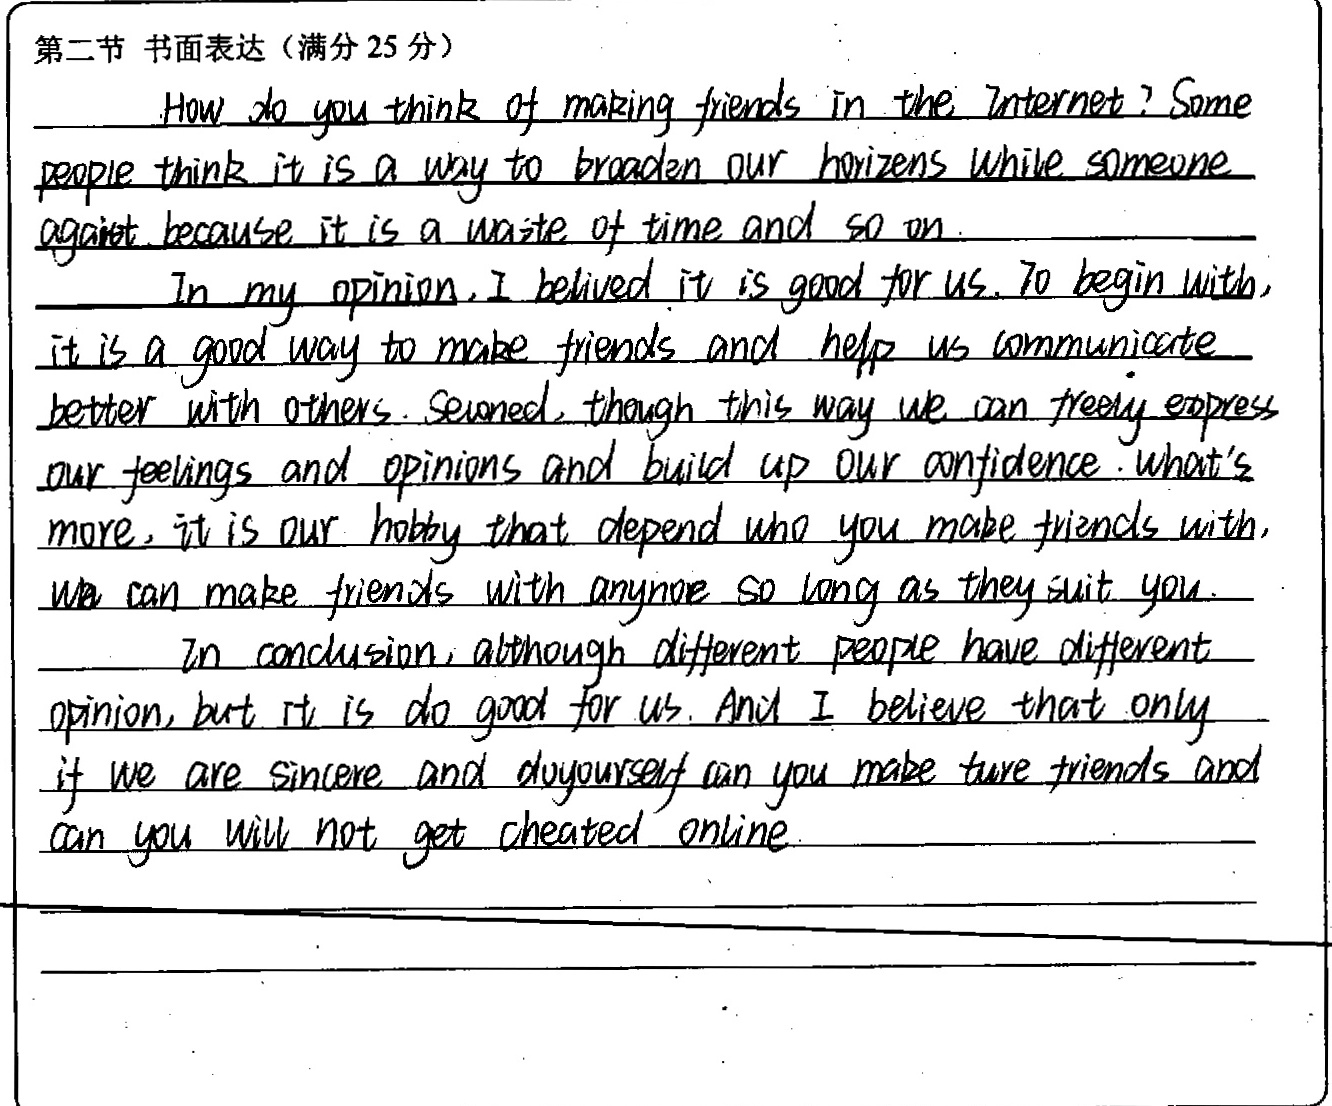 第二节 书面表达（满分 25 分）
How do you think of making friends in the Internet? Some
people think it is a way to broaden our horizens while someone
against because it is a waste of time and so on.
In my opinion, I belived it is good for us. To begin with,
it is a good way to make friends and help us communicate
better with others. Seconed, though this way we can freely express
our feelings and opinions and build up our confidence. What's
more, it is our hobby that depend who you make friends with,
we can make friends with anynoe so long as they suit you.
In conclusion, although different people have different
opinion, but it is do good for us. And I believe that only
if we are sincere and doyourself can you make ture friends and
can you will not get cheated online.